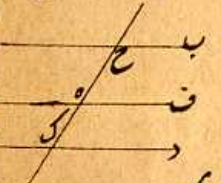 ب ح
ف ه
ك
د